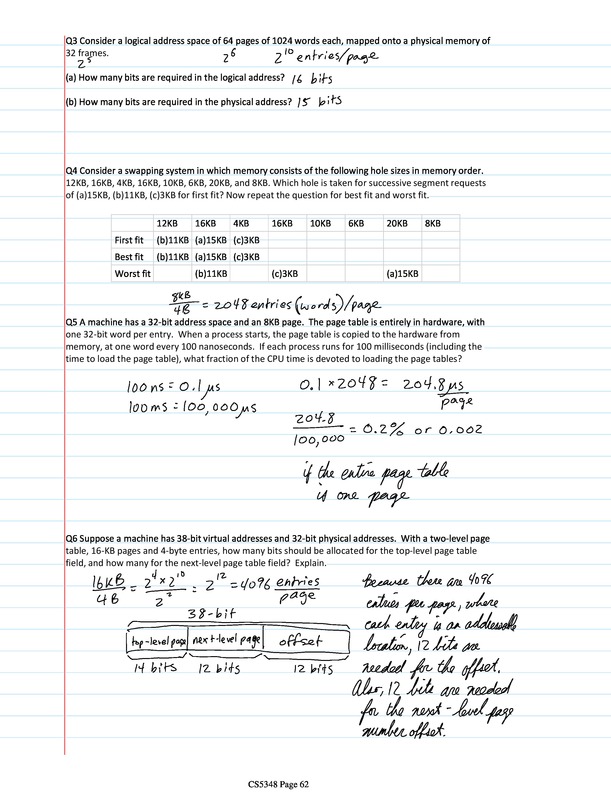 Q3 Consider a logical address space of 64 pages of 1024 words each, mapped onto a physical memory of
32 frames.
2^5 2^6 2^10 entries/page
(a) How many bits are required in the logical address? 16 bits
(b) How many bits are required in the physical address? 15 bits
Q4 Consider a swapping system in which memory consists of the following hole sizes in memory order.
12KB, 16KB, 4KB, 16KB, 10KB, 6KB, 20KB, and 8KB. Which hole is taken for successive segment requests
of (a)15KB, (b)11KB, (c)3KB for first fit? Now repeat the question for best fit and worst fit.
12KB 16KB 4KB 16KB 10KB 6KB 20KB 8KB
First fit (b)11KB (a)15KB (c)3KB
Best fit (b)11KB (a)15KB (c)3KB
Worst fit (b)11KB (c)3KB (a)15KB
8KB/4B = 2048 entries (words)/page
Q5 A machine has a 32-bit address space and an 8KB page. The page table is entirely in hardware, with
one 32-bit word per entry. When a process starts, the page table is copied to the hardware from
memory, at one word every 100 nanoseconds. If each process runs for 100 milliseconds (including the
time to load the page table), what fraction of the CPU time is devoted to loading the page tables?
100ns = 0.1 μs
100ms = 100,000 μs
0.1 × 2048 = 204.8 μs/page
204.8/100,000 = 0.2% or 0.002
if the entire page table
is one page
Q6 Suppose a machine has 38-bit virtual addresses and 32-bit physical addresses. With a two-level page
table, 16-KB pages and 4-byte entries, how many bits should be allocated for the top-level page table
field, and how many for the next-level page table field? Explain.
16KB/4B = 2^4 × 2^10/2^2 = 2^12 = 4096 entries/page
38-bit
top-level page next-level page offset
14 bits 12 bits 12 bits
Because there are 4096
entries per page, where
each entry is an addressable
location, 12 bits are
needed for the offset.
Also, 12 bits are needed
for the next-level page
number offset.
CS5348 Page 62